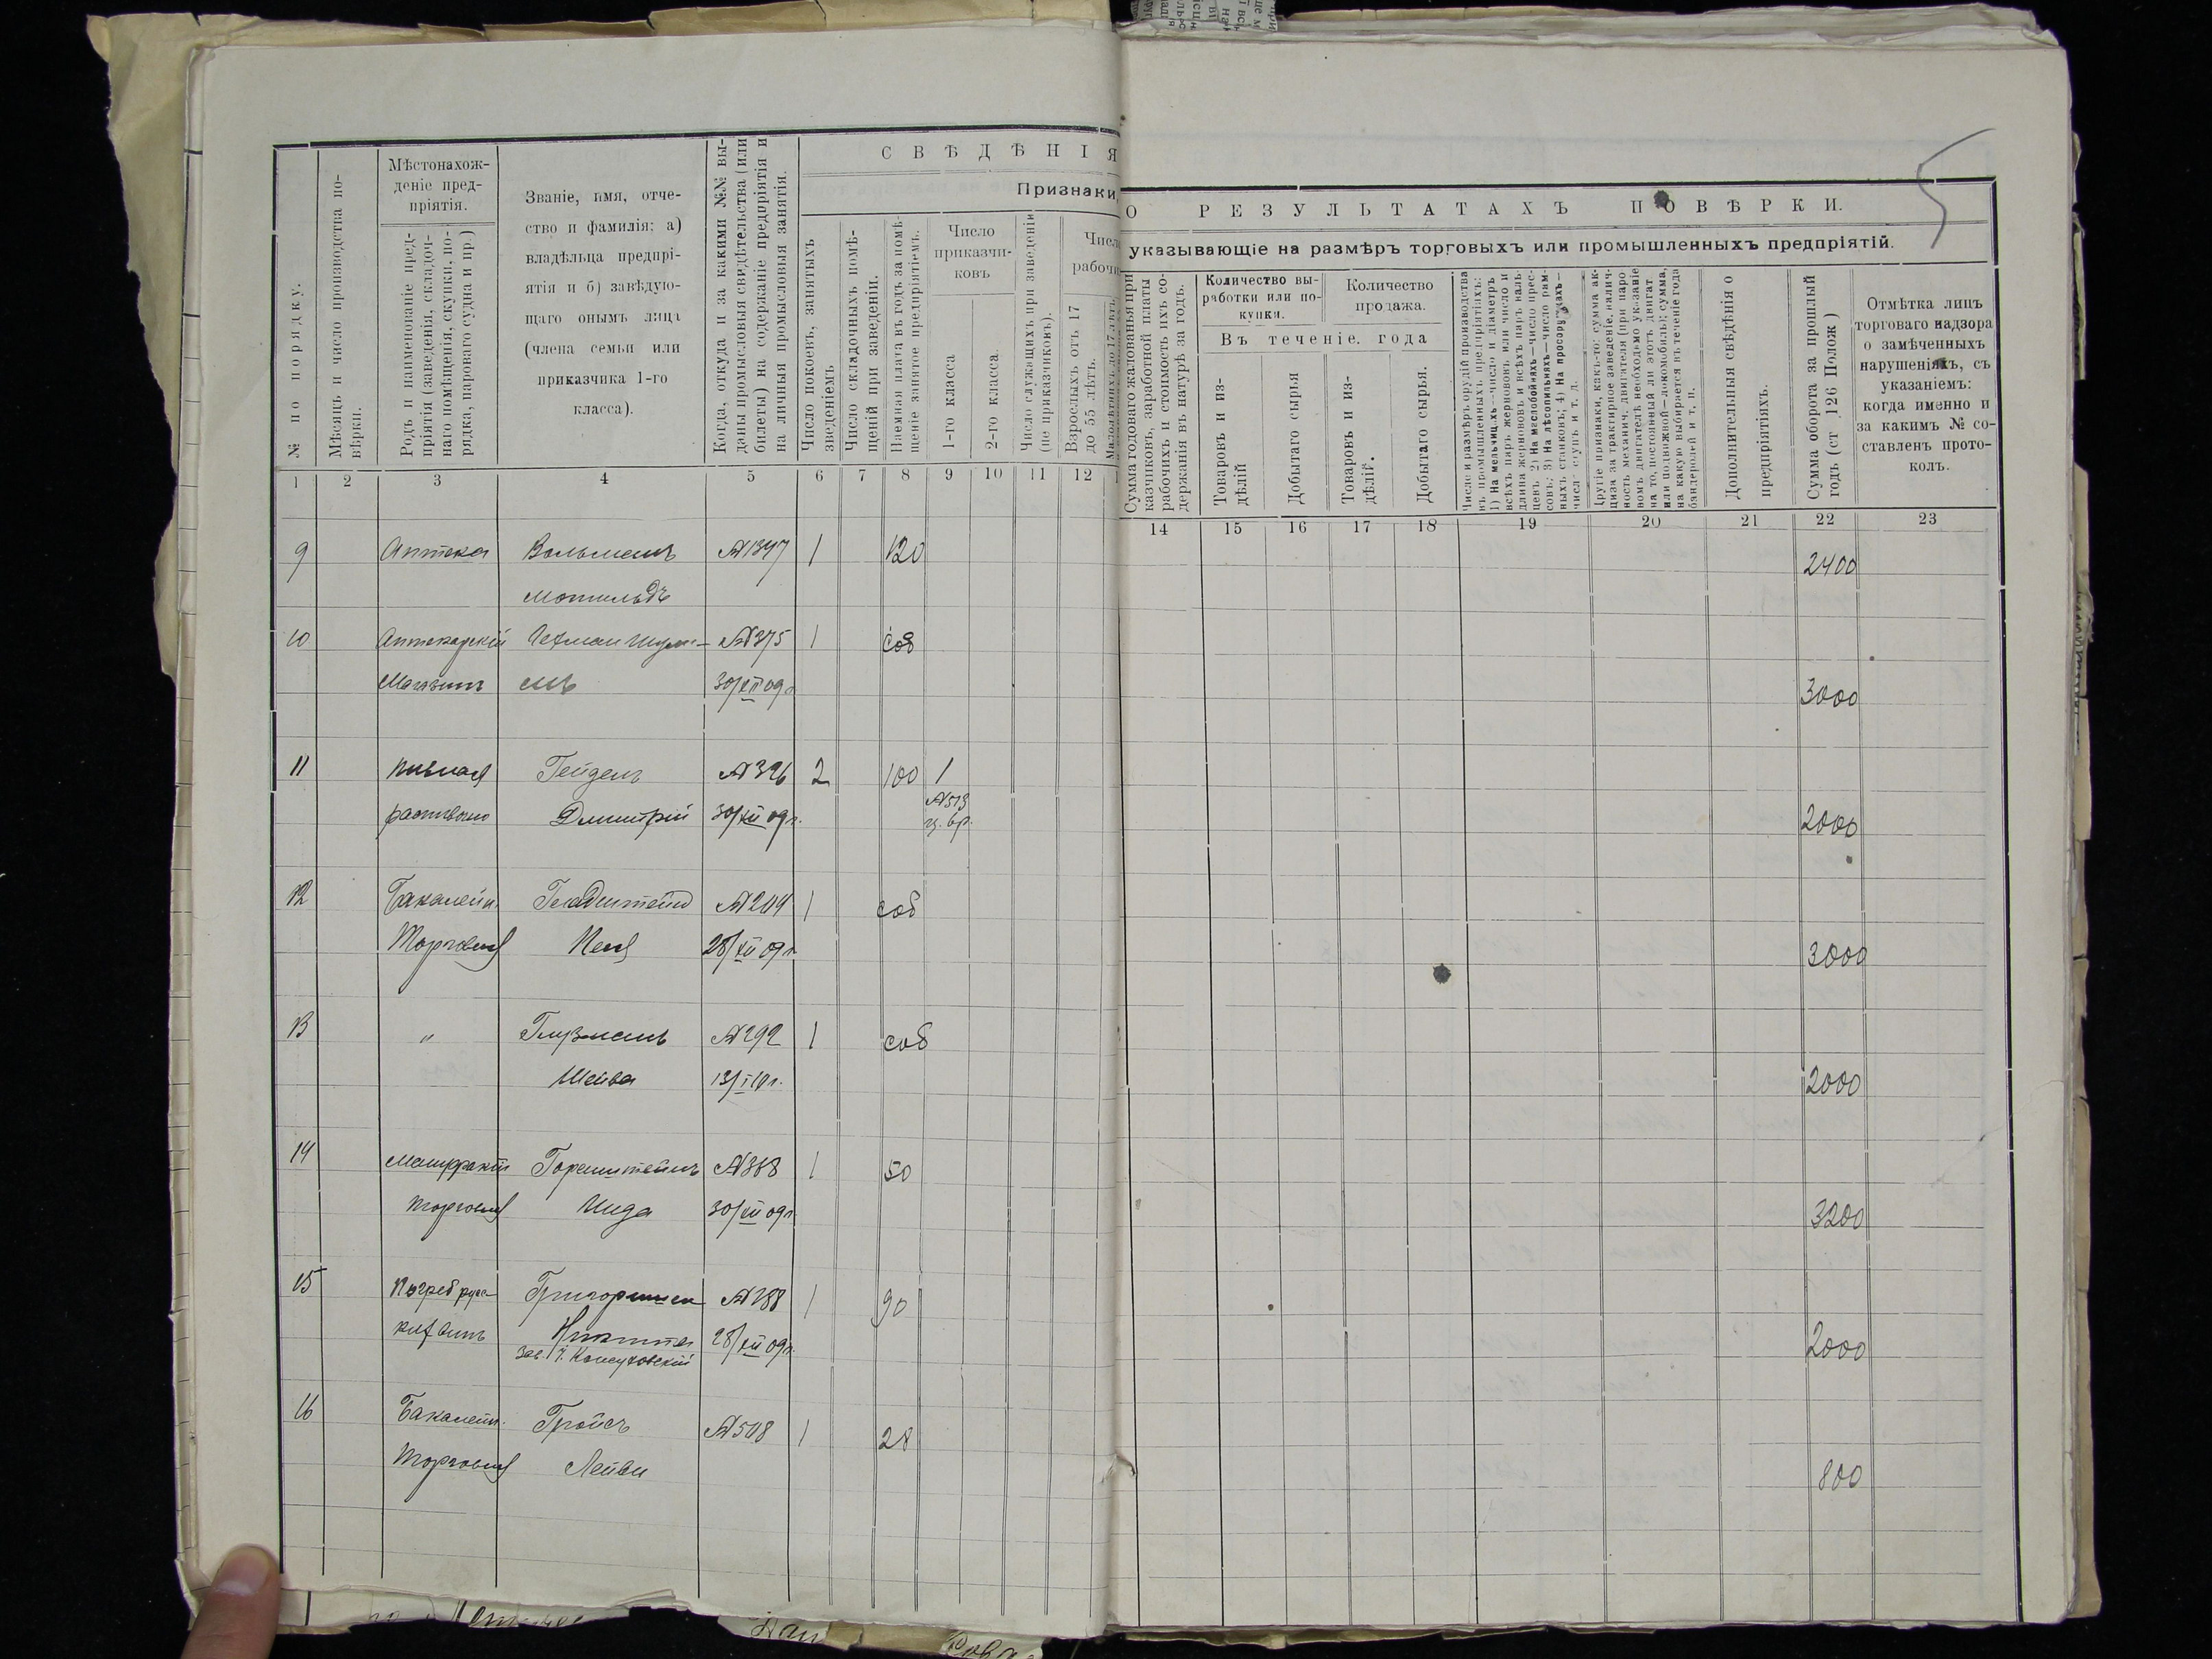 5
СВѢДѢНІЯ О РЕЗУЛЬТАТАХЪ ПОВѢРКИ.
Признаки, указывающіе на размѣръ торговыхъ или промышленныхъ предпріятій.
№ по порядку.
Мѣсяцъ и число производства по-
вѣрки.
Мѣстонахож-
деніе пред-
пріятія.
Родъ и наименованіе пред-
пріятія (заведенія, складоч-
наго помѣщенія, скупки, по-
рядка, пароваго судна и пр.)
Званіе, имя, отче-
ство и фамилія: а)
владѣльца предпрі-
ятія и б) завѣдую-
щаго онымъ лица
(члена семьи или
приказчика 1-го
класса).
Когда, откуда и за какими №№ вы-
даны промысловыя свидѣтельства (или
билеты) на содержаніе предпріятія и
на личныя промысловыя занятія.
Число покоевъ, занятыхъ
зведеніемъ
Число складочныхъ помѣ-
щеній при заведеніи.
Наемная плата въ годъ за помѣ-
щеніе занятое предпріятіемъ.
Число
приказчи-
ковъ
1-го класса
2-го класса.
Число служащихъ при заведеніи
(не приказчиковъ).
Число
рабочи
Взрослыхъ отъ 17
до 55 лѣтъ.
Сумма годоваго жалованья при
казчиковъ, заработной платы
рабочихъ и стоимость ихъ со-
держанія въ натурѣ за годъ.
Количество вы-
работки или по-
купки.
Количество
продажа.
Въ теченіе. года
Товаровъ и из-
дѣлій
Добытаго сырья
Товаровъ и из-
дѣлій.
Добытаго сырья.
Число и размѣръ орудій производства
въ промышленныхъ предпріятіяхъ:
1) На мельницахъ—число и діаметръ
всѣхъ паръ жерновокъ или число и
длина жерновов и всѣхъ паръ валь-
цевъ 2) На маслобойняхъ—число прес-
совъ; 3) На лѣсопильняхъ—число рам-
ныхъ станковъ; 4) На просорушдахъ—
числ. ступъ и т. д.
Другіе признаки, какъ-то: сумма ак-
циза за трактирное заведеніе, налич-
ность механич. двигателя (при паро
вомъ двигателѣ необходимо указаніе
на то, постоянный ли этотъ двигат
или подвижной—локомобиль); сумма,
на какую выбирается въ теченіе года
бандеролей и т, п.
Дополнительныя свѣдѣнія о
предпріятіяхъ.
Сумма оборота за прошлый
годъ (ст 126 Полож )
Отмѣтка лицъ
торговаго надзора
о замѣченныхъ
нарушеніяхъ, съ
указаніемъ:
когда именно и
за какимъ № со-
ставленъ прото-
колъ.
1 2 3 4 5 6 7 8 9 10 11 12 14 15 16 17 18 19 20 21 22 23
9 Аптека Вольманъ №1347 1 120 2400
Мотильдъ
10 Аптекарскій Гехман №375 1 соб
Магазинъ 30/XII 09г. 3000
11 пивная Гейденъ №326 2 100 1
распивочно Дмитрій 30/XII 09г. №513 2000
12 Бакалейн. Гладштейн №204 1 соб
Торговля Неня 28/XII 09г. 3000
13 " Глузманъ №292 1 соб
Шейва 13/I 10г. 2000
14 Мануфракт Горенштейнъ №368 1 50
торговля Инда 30/XII 09г. 3200
15 Погреб русс- Григоришен №288 1 90
кихвинъ Никита 28/XII 09г. 2000
зав.
16 Бакалейн. Гройсъ №508 1 28
Торговля Лейви 800